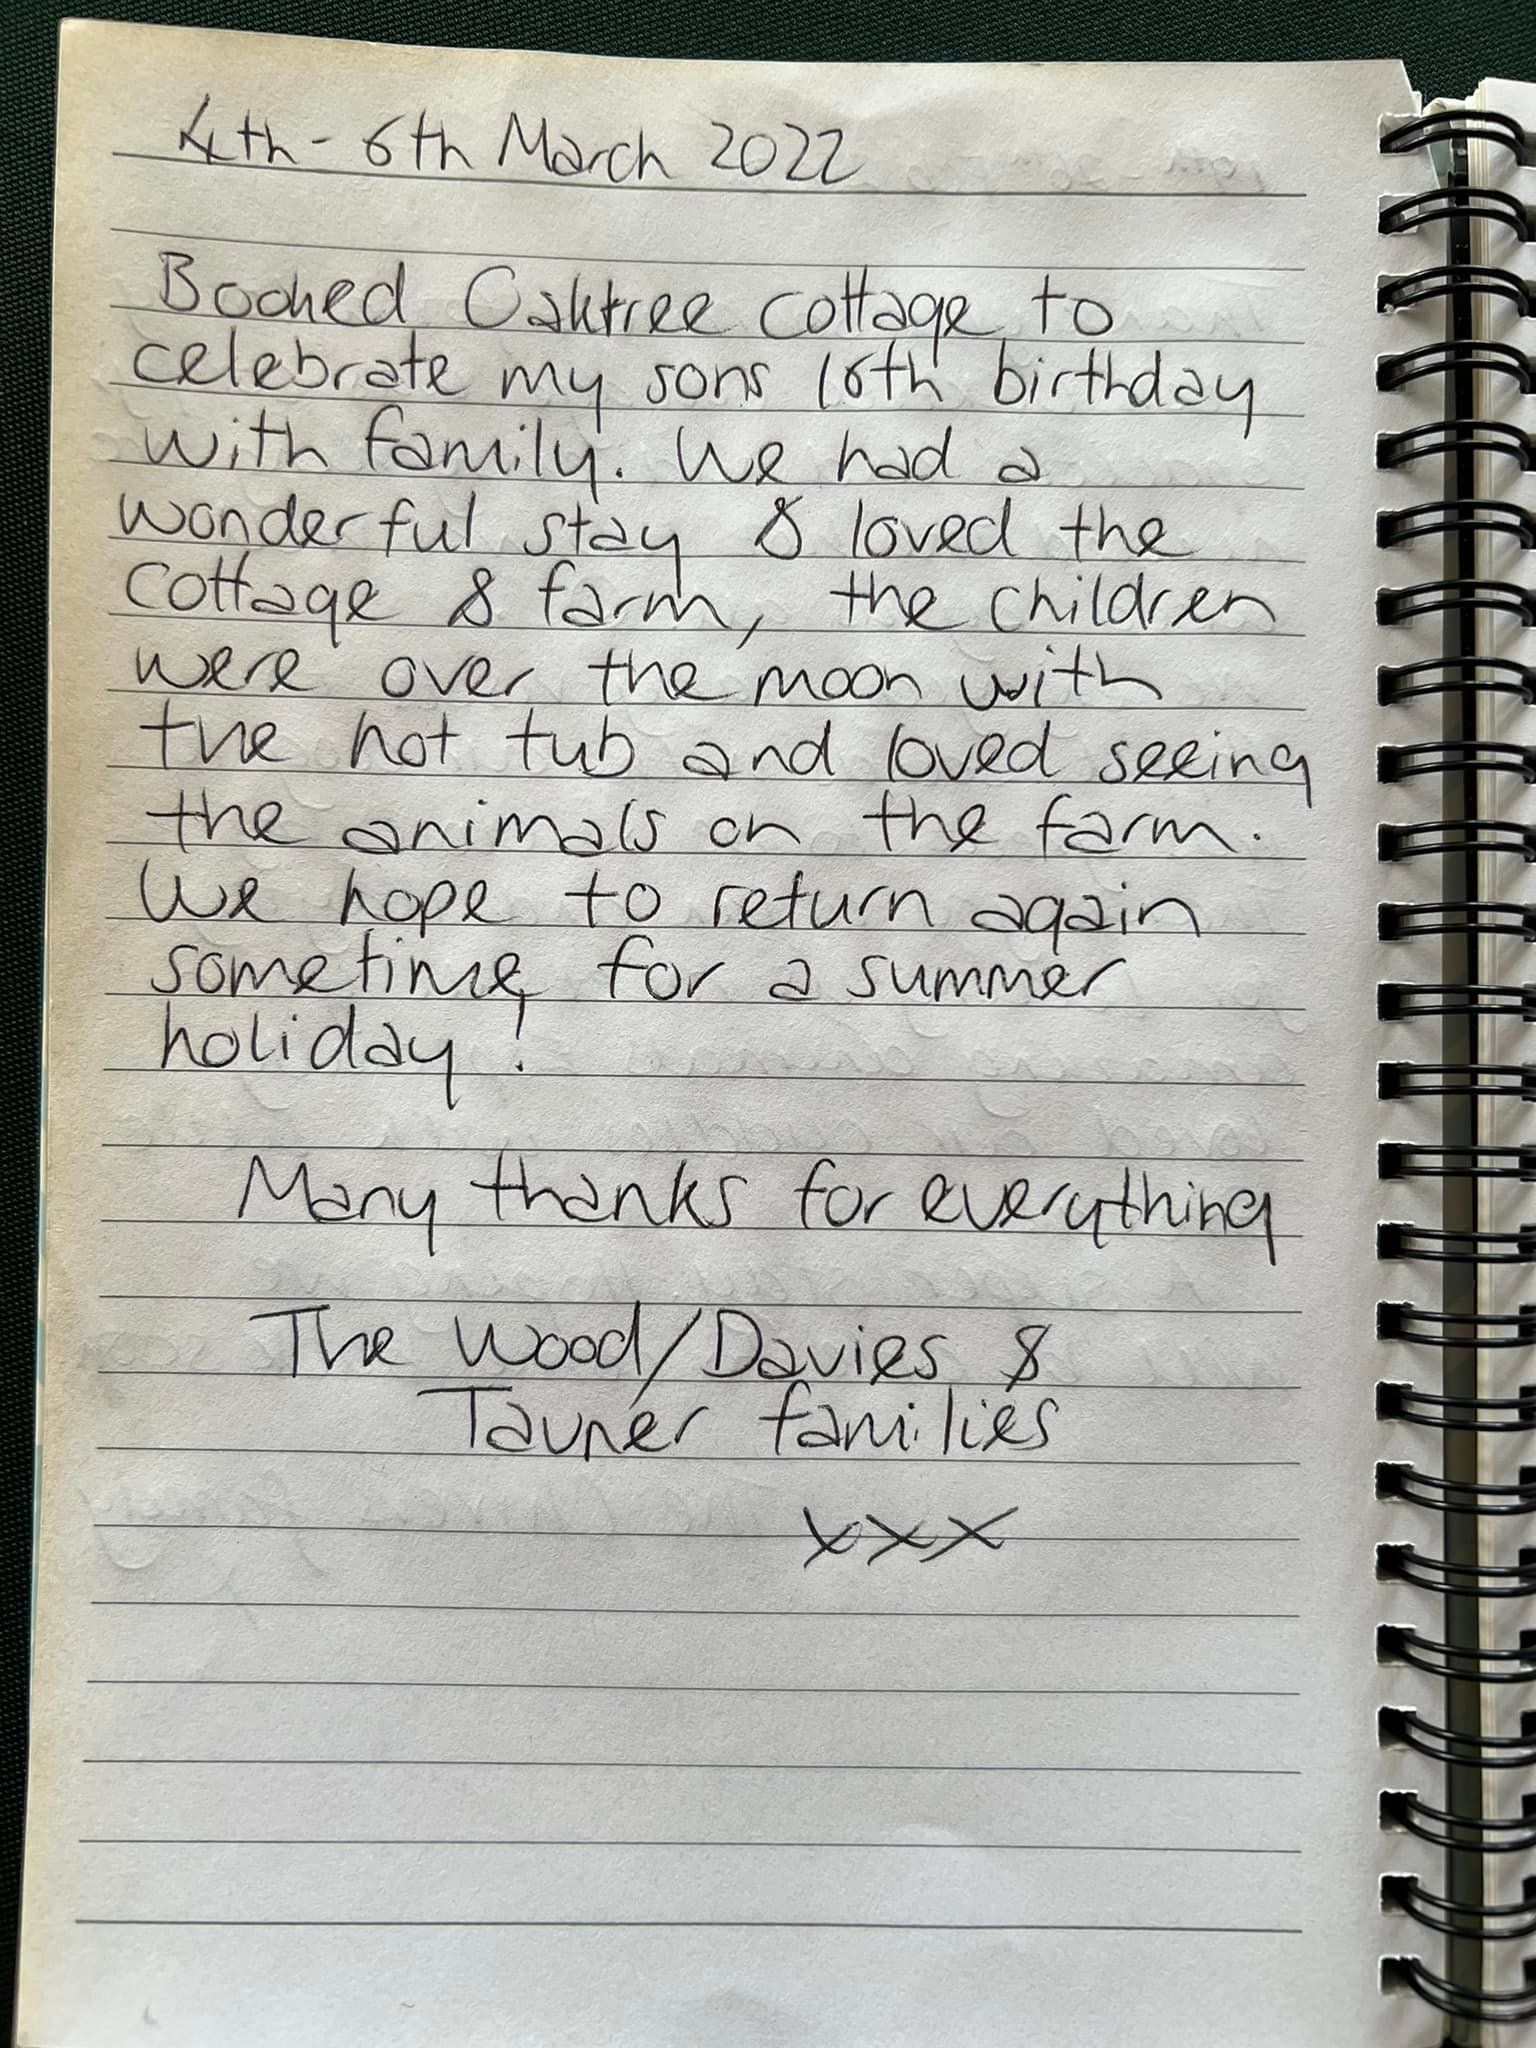 4th - 6th March 2022
Booked Oaktree cottage to
celebrate my sons 16th birthday
with family. We had a
wonderful stay & loved the
cottage & farm, the children
were over the moon with
the hot tub and loved seeing
the animals on the farm.
We hope to return again
sometime, for a summer
holiday!
Many thanks for everything
The Wood/Davies &
Tavner families
xxx